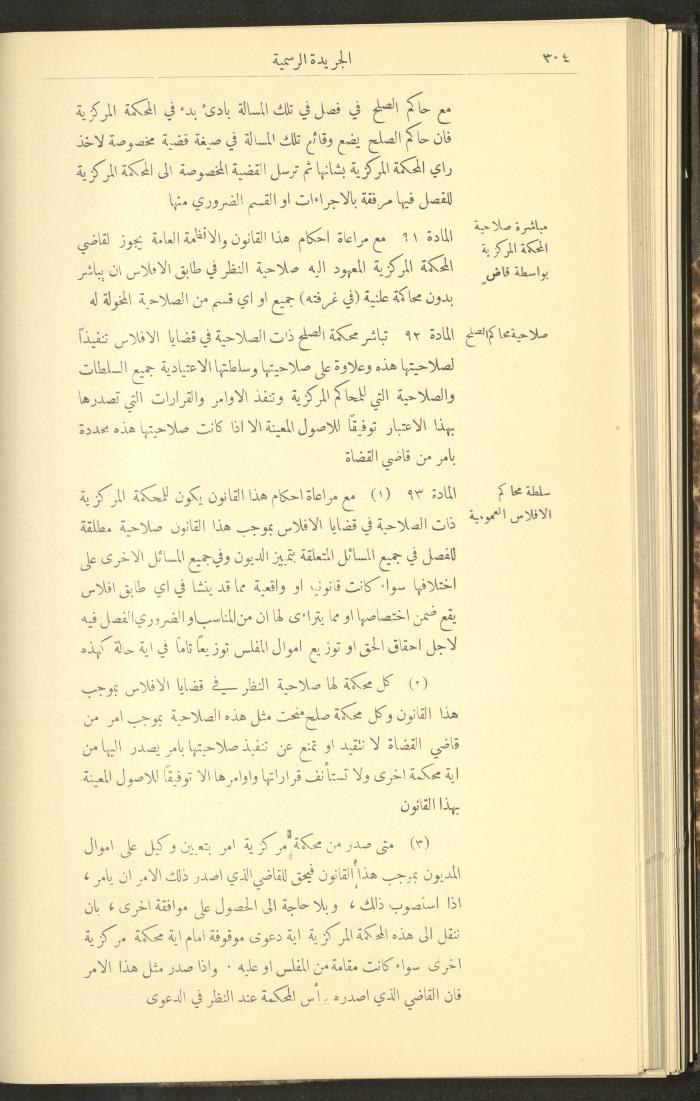 ٣٠٤
الجريدة الرسمية
مع حاكم الصلح في فصل في تلك المسالة بادئ بدء في المحكمة المركزية
فان حاكم الصلح يضع وقائع تلك المسالة في صيغة قضية مخصوصة لاخذ
راي المحكمة المركزية بشانها ثم ترسل القضية المخصوصة الى المحكمة المركزية
للفصل فيها مرفقة بالاجراءات او القسم الضروري منها
مباشرة صلاحية
المحكمة المركزية
بواسطة قاضٍ
المادة ٩١ مع مراعاة احكام هذا القانون والانظمة العامة يجوز لقاضي
المحكمة المركزية المعهود اليه صلاحية النظر في طابق الافلاس ان يباشر
بدون محاكمة علنية (في غرفته) جميع او اي قسم من الصلاحية المخولة له
صلاحية محاكم الصلح
المادة ٩٢ تباشر محكمة الصلح ذات الصلاحية في قضايا الافلاس تنفيذاً
لصلاحيتها هذه وعلاوة على صلاحيتها وسلطتها الاعتيادية جميع السلطات
والصلاحية التي للمحاكم المركزية وتنفذ الاوامر والقرارات التي تصدرها
بهذا الاعتبار توفيقاً للاصول المعينة الا اذا كانت صلاحيتها هذه محددة
بامر من قاضي القضاة
سلطة محاكم
الافلاس العمومية
المادة ٩٣ (١) مع مراعاة احكام هذا القانون يكون للمحكمة المركزية
ذات الصلاحية في قضايا الافلاس بموجب هذا القانون صلاحية مطلقة
للفصل في جميع المسائل المتعلقة بتمييز الديون وفي جميع المسائل الاخرى على
اختلافها سواء كانت قانونية او واقعية مما قد ينشا في اي طابق افلاس
يقع ضمن اختصاصها او مما يتراءى لها ان من المناسب او الضروري الفصل فيه
لاجل احقاق الحق او توزيع اموال المفلس توزيعاً تاماً في اية حالة كهذه
(٢) كل محكمة لها صلاحية النظر في قضايا الافلاس بموجب
هذا القانون وكل محكمة صلح منحت مثل هذه الصلاحية بموجب امر من
قاضي القضاة لا تتقيد او تمنع عن تنفيذ صلاحيتها بامر يصدر اليها من
اية محكمة اخرى ولا تستأنف قراراتها واوامرها الا توفيقاً للاصول المعينة
بهذا القانون
(٣) متى صدر من محكمة مركزية امر بتعيين وكيل على اموال
المديون بموجب هذا القانون فيحق للقاضي الذي اصدر ذلك الامر ان يامر ،
اذا استصوب ذلك ، وبلا حاجة الى الحصول على موافقة اخرى ، بان
تنقل الى هذه المحكمة المركزية اية دعوى موقوفة امام اية محكمة مركزية
اخرى سواء كانت مقامة من المفلس او عليه . واذا صدر مثل هذا الامر
فان القاضي الذي اصدره يرأس المحكمة عند النظر في الدعوى